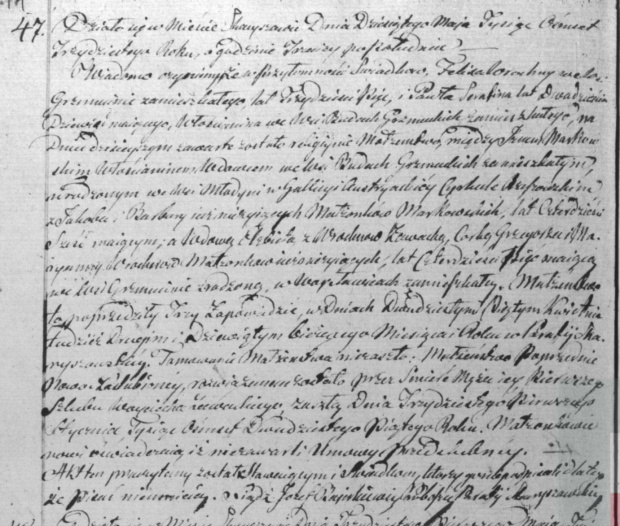 47. Działo się w Mieście Skaryszewie Dnia Dziewiątego Maja Tysiąc Ośmset
Trzydziestego Roku, o godzinie Trzeciey po południu
Wiadomo czyniemy że w Przytomności Świadków, Felixa we Wsi
zamieszkałego lat Trzydzieści i Pawła Serafina lat Dwadzieścia
Dziewięć maiącego, Włościanina we Wsi Budach zamieszkałego, na
Dniu dzisieyszym zawarte zostało religiyne Małżeństwo, między Markow-
skim Włościaninem, Wdowcem we Wsi Budach zamieszkałym
urodzonym w Wsi w Galicyi Austryackiey Cyrkule
z Jakóba i Barbary iuż nieżyiących Małżonków Markowskich, lat Czterdzieści
Sześć maiącym; a Wdową Elżbietą z Córką Grzegorza i Ma-
ryanny Małżonków nieżyiących, lat Czterdzieści Pięć maiącą
we Wsi zrodzoną, w zamieszkałą. Małżeństwo
to poprzedziły Trzy Zapowiedzie, w Dniach Dwudziestym Piątym Kwietnia
tudzież Drugim i Dziewiątym bieżącego Miesiąca i Roku w Parafii Ska-
ryszewskiey. Tamowanie Małżeństwa nie zaszło. Małżeństwo Poprzednie
Nowo Zaślubioney, rozwiązanem zostało przez Śmierć Męża iey Pierwszego
Ślubu Woyciecha zaszłą Dnia Trzydziestego Pierwszego
Stycznia, Tysiąc Ośmset Dwudziestego Piątego Roku. Małżonkowie
nowi oświadczaią iż niezawarli Umowy Przedślubney.
Akt ten przeczytany został Stawaiącym i Świadkom, którzy go niepodpisali dla tego
że pisać nieumieią. Xiądz Józef Parafii Skaryszewskiey